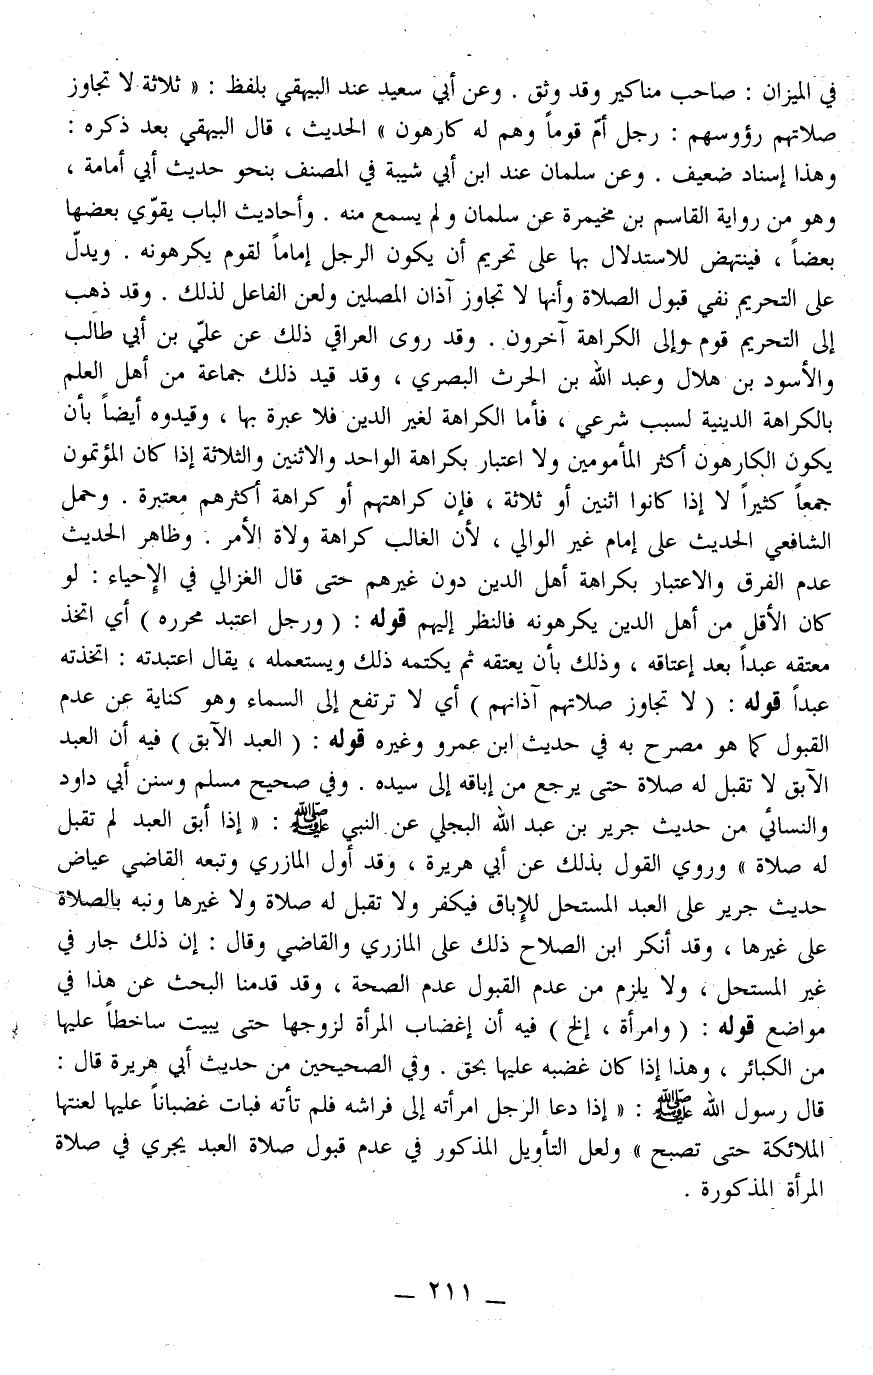 في الميزان : صاحب مناكير وقد وثق . وعن أبي سعيد عند البيهقي بلفظ : « ثلاثة لا تجاوز
صلاتهم رؤوسهم : رجل أمّ قوماً وهم له كارهون » الحديث ، قال البيهقي بعد ذكره :
وهذا إسناد ضعيف . وعن سلمان عند ابن أبي شيبة في المصنف بنحو حديث أبي أمامة ،
وهو من رواية القاسم بن مخيمرة عن سلمان ولم يسمع منه . وأحاديث الباب يقوّي بعضها
بعضاً ، فينتهض للاستدلال بها على تحريم أن يكون الرجل إماماً لقوم يكرهونه . ويدلّ
على التحريم نفي قبول الصلاة وأنها لا تجاوز آذان المصلين ولعن الفاعل لذلك . وقد ذهب
إلى التحريم قوم وإلى الكراهة آخرون . وقد روى العراقي ذلك عن عليّ بن أبي طالب
والأسود بن هلال وعبد الله بن الحرث البصري ، وقد قيد ذلك جماعة من أهل العلم
بالكراهة الدينية لسبب شرعي ، فأما الكراهة لغير الدين فلا عبرة بها ، وقيدوه أيضاً بأن
يكون الكارهون أكثر المأمومين ولا اعتبار بكراهة الواحد والاثنين والثلاثة إذا كان المؤتمون
جمعاً كثيراً لا إذا كانوا اثنين أو ثلاثة ، فإن كراهتهم أو كراهة أكثرهم معتبرة . وحمل
الشافعي الحديث على إمام غير الوالي ، لأن الغالب كراهة ولاة الأمر . وظاهر الحديث
عدم الفرق والاعتبار بكراهة أهل الدين دون غيرهم حتى قال الغزالي في الإحياء : لو
كان الأقل من أهل الدين يكرهونه فالنظر إليهم قوله : ( ورجل اعتبد محرره ) أي اتخذ
معتقه عبداً بعد إعتاقه ، وذلك بأن يعتقه ثم يكتمه ذلك ويستعمله ، يقال اعتبدته : اتخذته
عبداً قوله : ( لا تجاوز صلاتهم آذانهم ) أي لا ترتفع إلى السماء وهو كناية عن عدم
القبول كما هو مصرح به في حديث ابن عمرو وغيره قوله : ( العبد الآبق ) فيه أن العبد
الآبق لا تقبل له صلاة حتى يرجع من إباقه إلى سيده . وفي صحيح مسلم وسنن أبي داود
والنسائي من حديث جرير بن عبد الله البجلي عن النبي ﷺ : « إذا أبق العبد لم تقبل
له صلاة » وروي القول بذلك عن أبي هريرة ، وقد أول المازري وتبعه القاضي عياض
حديث جرير على العبد المستحل للإباق فيكفر ولا تقبل له صلاة ولا غيرها ونبه بالصلاة
على غيرها ، وقد أنكر ابن الصلاح ذلك على المازري والقاضي وقال : إن ذلك جار في
غير المستحل ، ولا يلزم من عدم القبول عدم الصحة ، وقد قدمنا البحث عن هذا في
مواضع قوله : ( وامرأة ، إلخ ) فيه أن إغضاب المرأة لزوجها حتى يبيت ساخطاً عليها
من الكبائر ، وهذا إذا كان غضبه عليها بحق . وفي الصحيحين من حديث أبي هريرة قال :
قال رسول الله ﷺ : « إذا دعا الرجل امرأته إلى فراشه فلم تأته فبات غضباناً عليها لعنتها
الملائكة حتى تصبح » ولعل التأويل المذكور في عدم قبول صلاة العبد يجري في صلاة
المرأة المذكورة .
— ٢١١ —